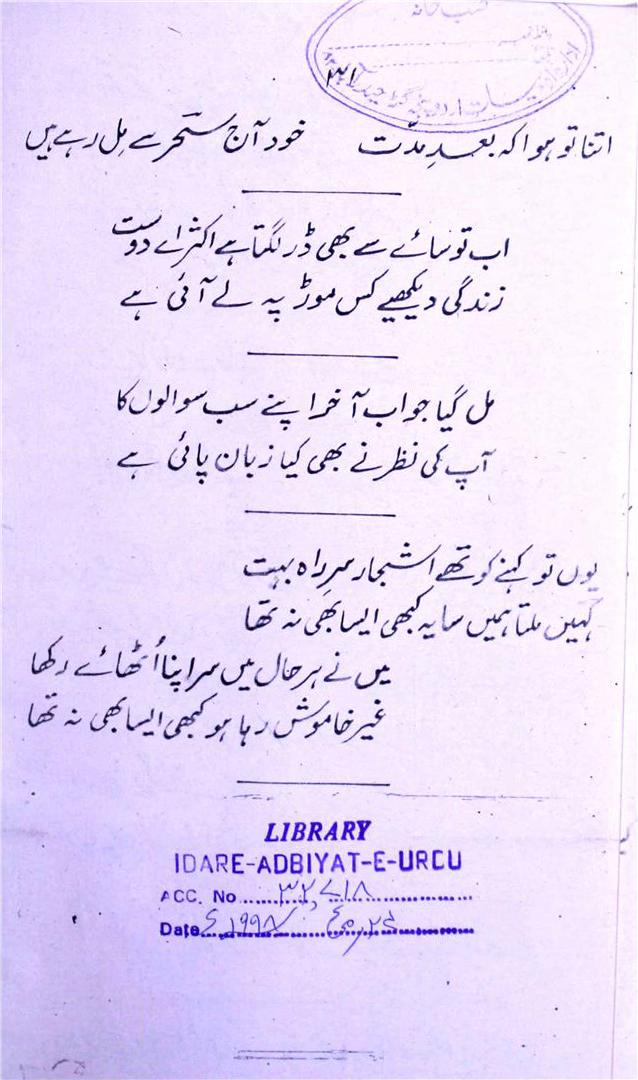 کتب خانہ
۳۱
اتنا تو ہوا کہ بعدِ مدّت خود آج سحر سے مِل رہے ہیں
اب تو سائے سے بھی ڈر لگتا ہے اکثر اے دوست
زندگی دیکھیے کس موڑ پہ لے آئی ہے
مل گیا جواب آخر اپنے سب سوالوں کا
آپ کی نظر نے بھی کیا زبان پائی ہے
یوں تو کہنے کو تھے اشجار سرِ راہ بہت
کہیں ملتا ہمیں سایہ کبھی ایسا بھی نہ تھا
میں نے ہر حال میں سر اپنا اُٹھائے رکھا
غیر خاموش رہا ہو کبھی ایسا بھی نہ تھا
LIBRARY
IDARE-ADBIYAT-E-URDU
ACC. No ۳۲,۷۱۸
Date ۱۹۹۸ء